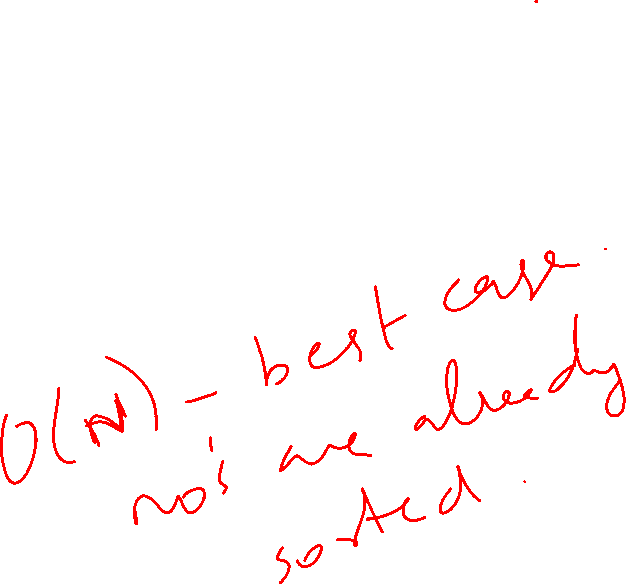 O(N) - best case.
no's are already
sorted.